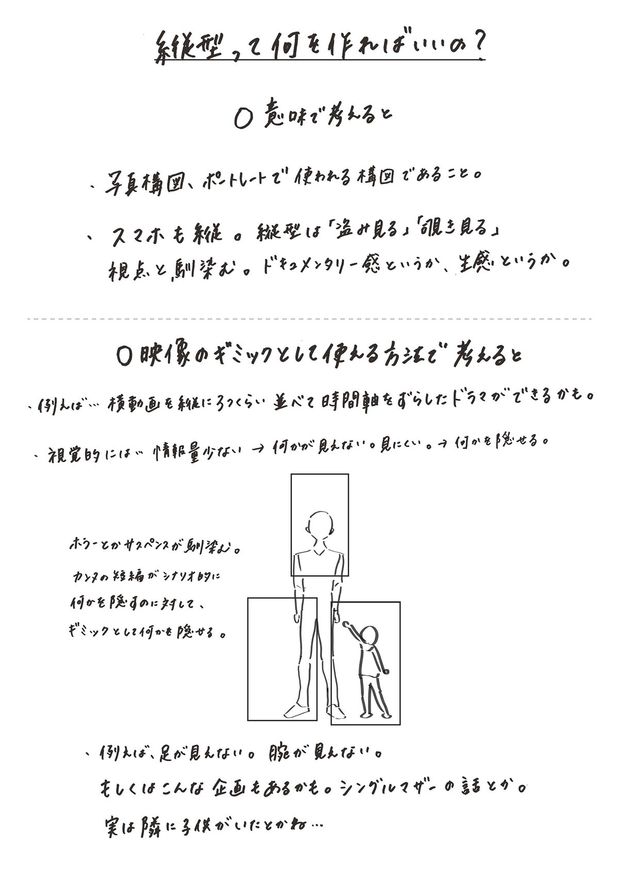 縦型って何を作ればいいの？
○ 意味で考えると
・写真構図、ポートレートで使われる構図であること。
・スマホも縦。縦型は「盗み見る」「覗き見る」
視点と馴染む。ドキュメンタリー感というか、生感というか。
○映像のギミックとして使える方法で考えると
・例えば… 横動画を縦に3つくらい並べて時間軸をずらしたドラマができるかも。
・視覚的には… 情報量少ない→何かが見えない。見にくい。→何かを隠せる。
ホラーとかサスペンスが馴染む。
カンヌの短編がシナリオ的に
何かを隠すのに対して、
ギミックとして何かを隠せる。
・例えば、足が見えない。腕が見えない。
もしくはこんな企画もあるかも。シングルマザーの話とか。
実は隣に子供がいたとかね…